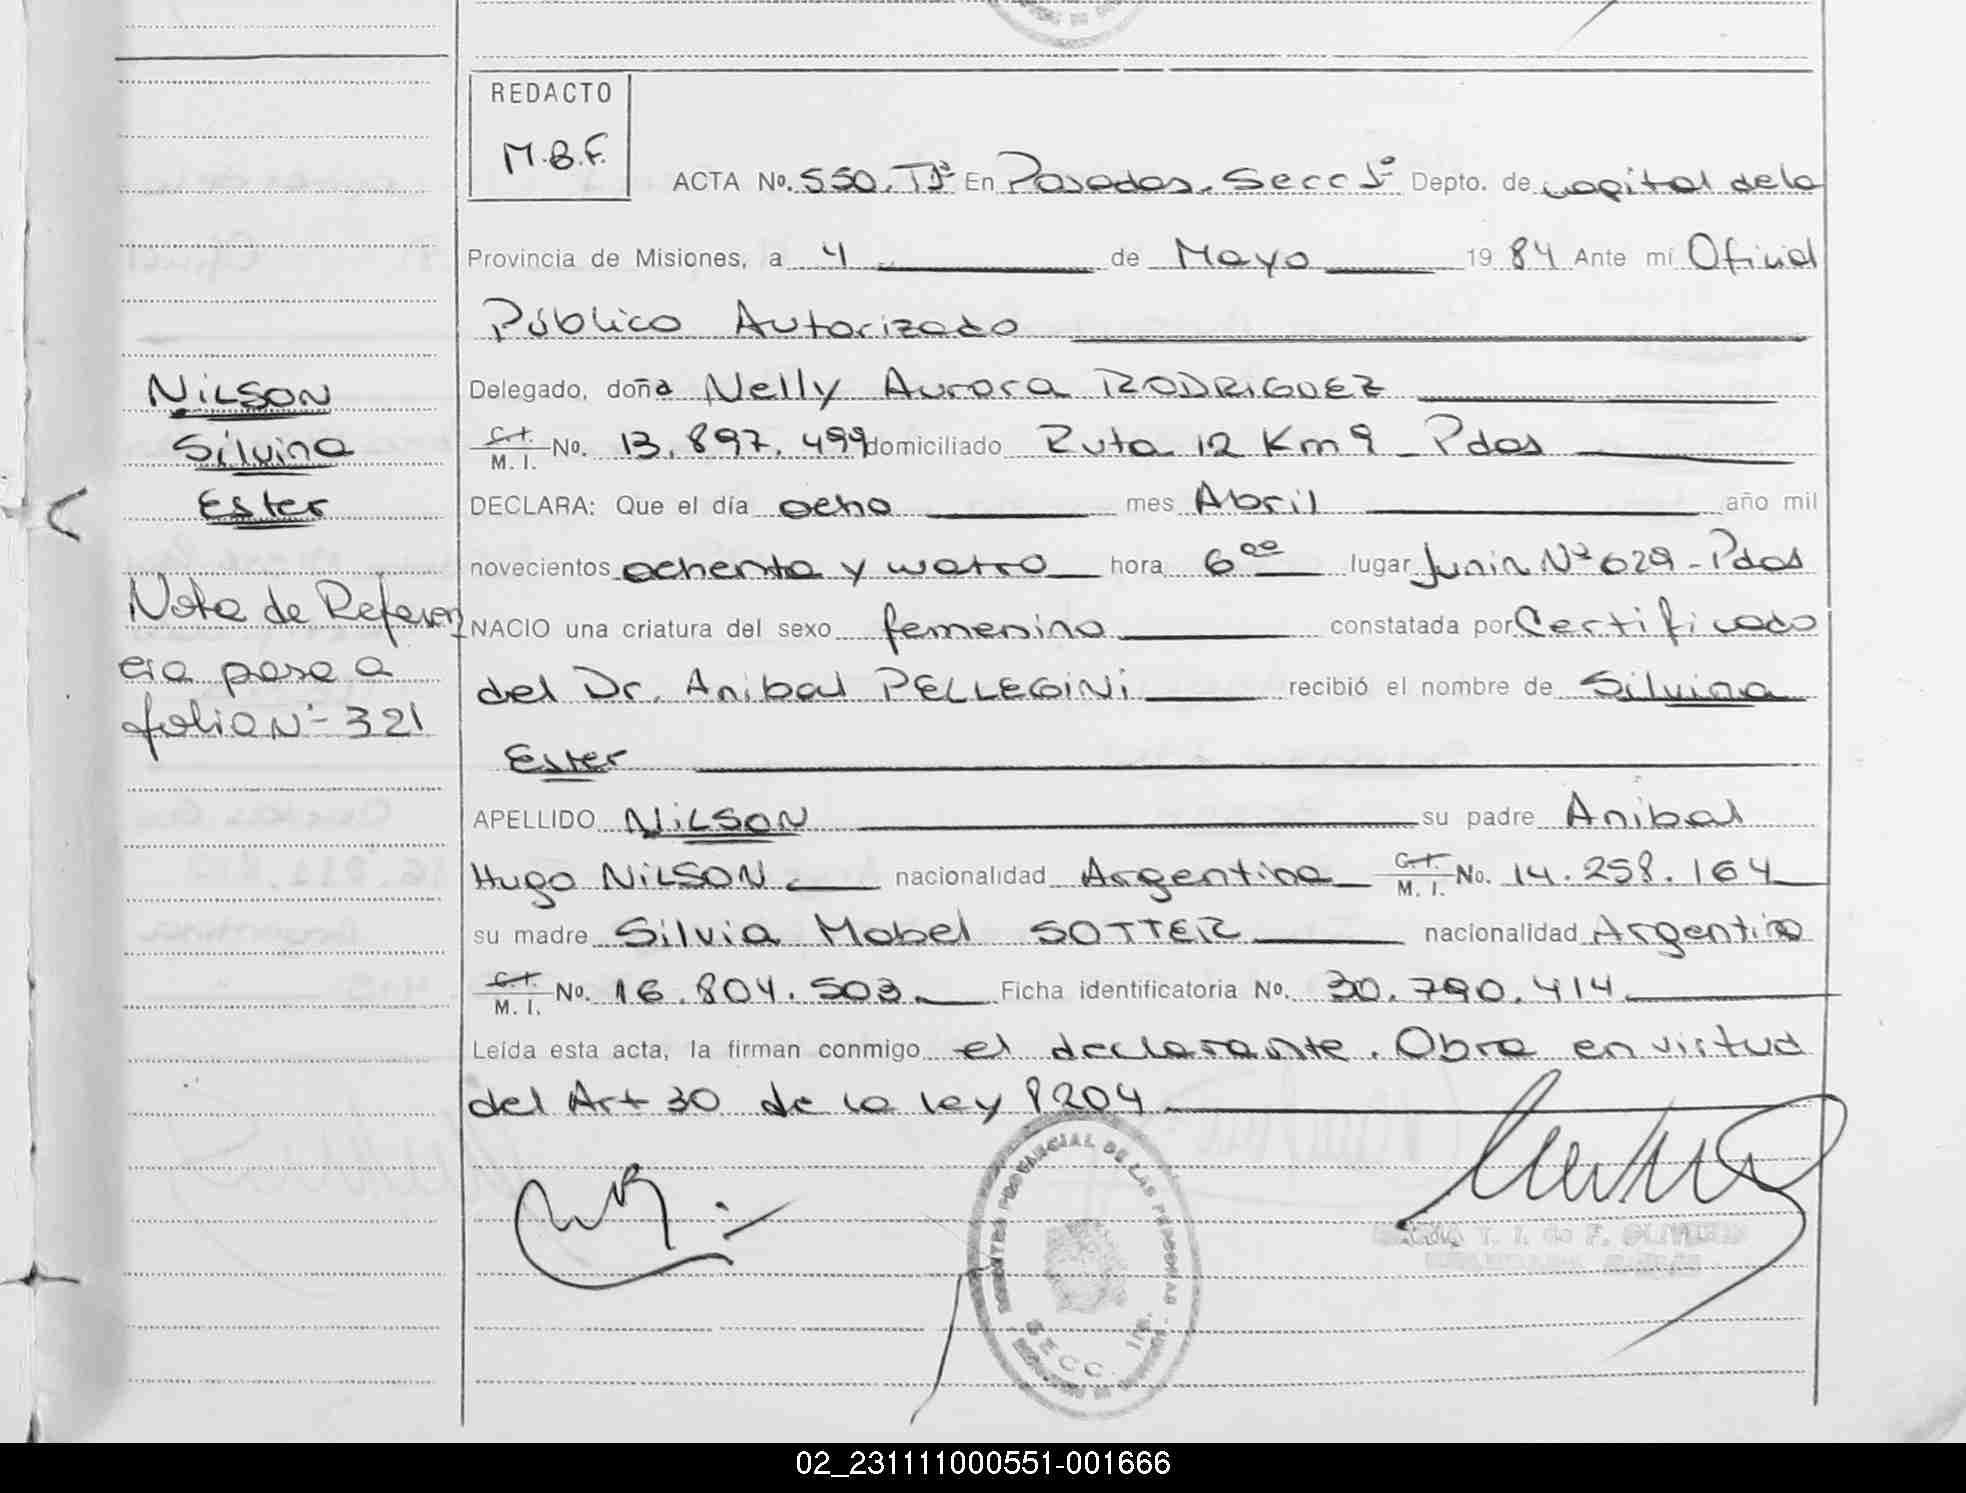 REDACTO
M.B.F.
ACTA No. 550. TIº En Posadas. Secc 1º Depto. de capital de la
Provincia de Misiones, a 4 de Mayo 1984 Ante mí Oficial
Público Autorizado
Delegado, doña Nelly Aurora RODRIGUEZ
C.I. M. I. No. 13.897.499 domiciliado Ruta 12 Km 9 - Pdas
DECLARA: Que el día ocho mes Abril año mil
novecientos ochenta y cuatro hora 6 00 lugar Junin Nº 629 - Pdas
NACIO una criatura del sexo femenino constatada por Certificado
del Dr. Anibal PELLEGINI recibió el nombre de Silvina
Ester
APELLIDO NILSON su padre Anibal
Hugo NILSON nacionalidad Argentina C.I. M. I. No. 14.258.164
su madre Silvia Mabel SOTTER nacionalidad Argentina
C.I. M. I. No. 16.804.503 Ficha identificatoria No. 30.790.414
Leída esta acta, la firman conmigo el declarante. Obra en virtud
del Art 30 de la ley 8204
NILSON
Silvina
Ester
Nota de Referen
cia pasa a
folio Nº 321
PROVINCIAL DE LAS PERSONAS
SECC. 1ra.
02_231111000551-001666